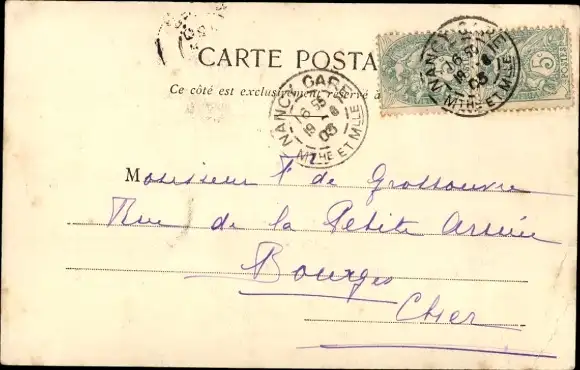 CARTE POSTA
Ce côté est exclusivement réservé à
NANCY GARE
16 55
19 - 8
03
MTHE ET MLLE
NANCY GARE
16 55
19 8
03
MTHE ET MLLE
5
POSTES
Monsieur F de Grossouvre
Rue de la Petite Armée
Bourges
Cher